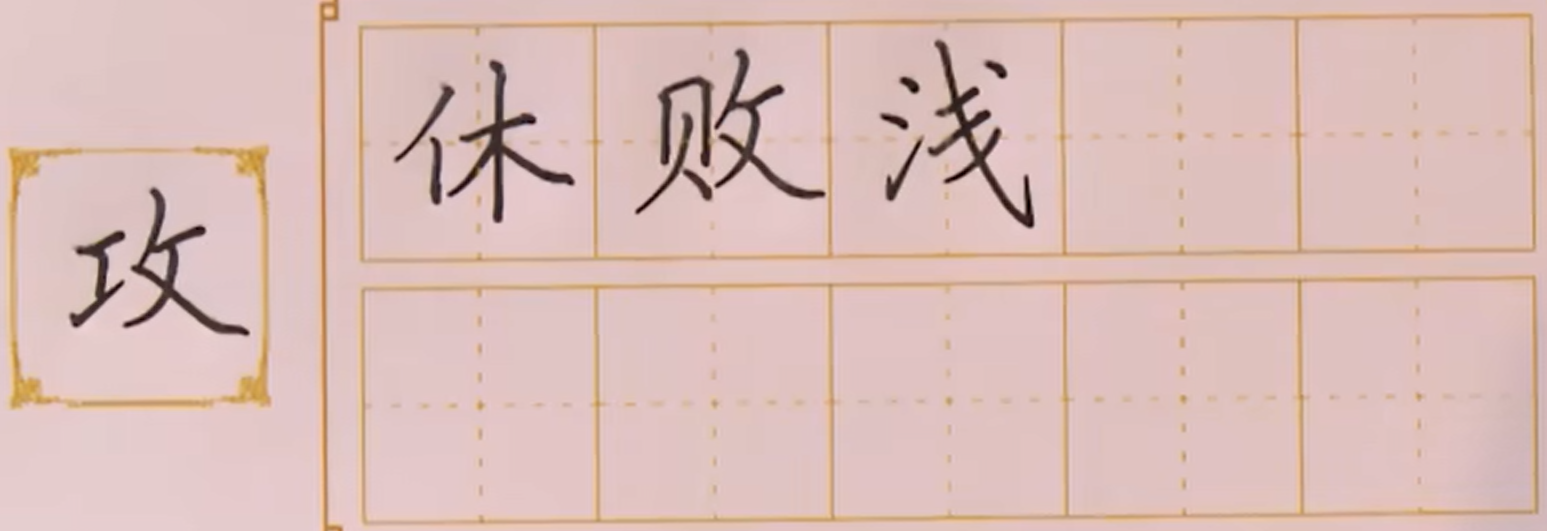 攻
休败浅